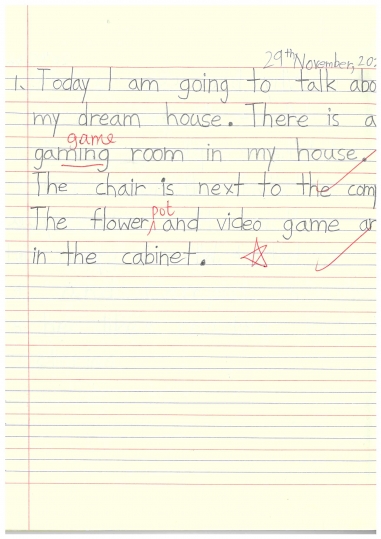 29th November, 202
1. Today I am going to talk abo
my dream house. There is a
game
gaming room in my house.
The chair is next to the com
The flower and video game ar
pot
in the cabinet.